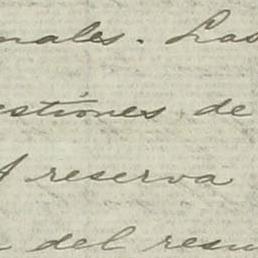 nales. Las
estiones de
A reserva
del resu